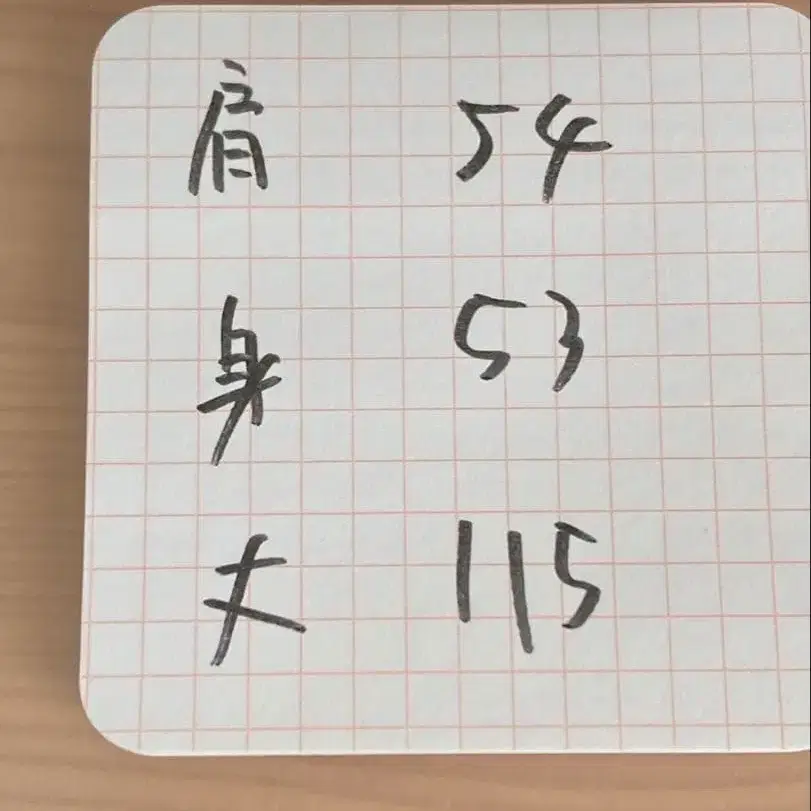 肩 54
身 53
丈 115